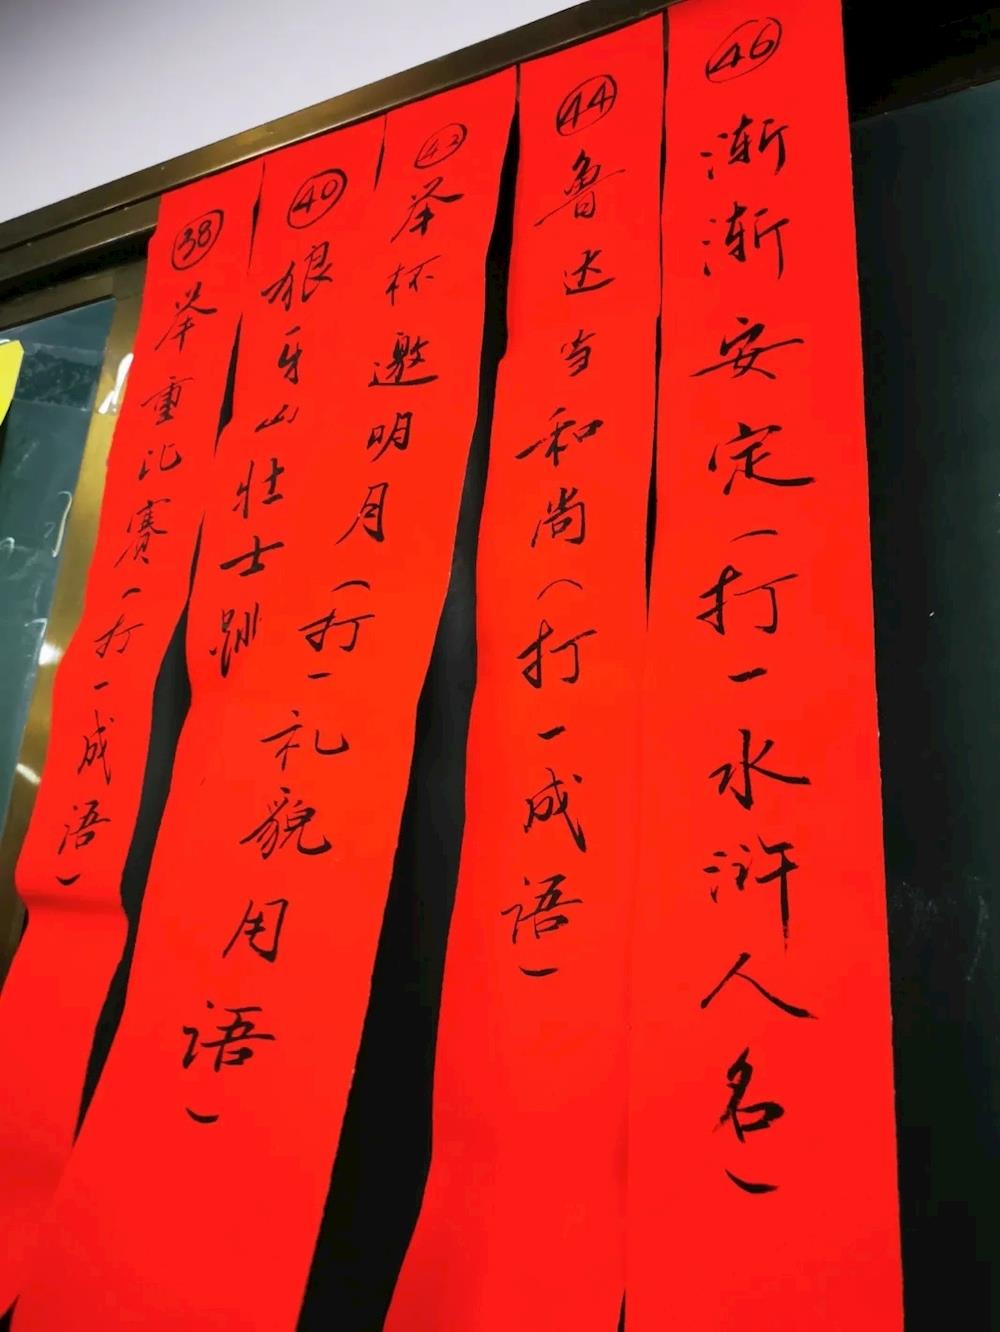 ㊳举重比赛(打一成语)
㊵狼牙山壮士跳
㊷举杯邀明月(打一礼貌用语)
㊹鲁达当和尚(打一成语)
㊻渐渐安定(打一水浒人名)